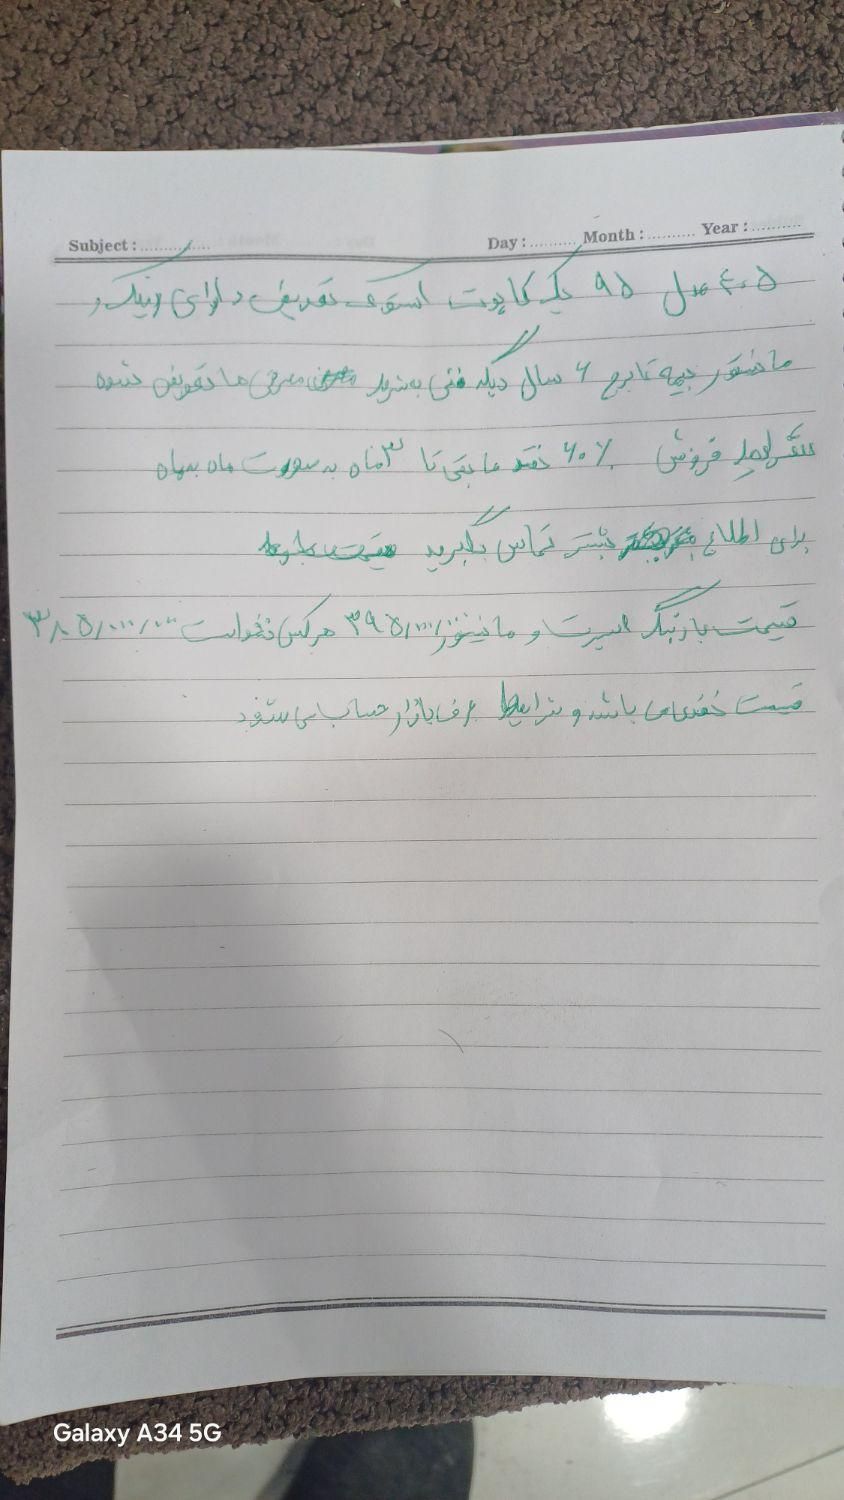 Subject : ............ Day : .......... Month : .......... Year : ..........
۴۰۵ مدل ۹۵ یک کاپوت استوک تعریض دارای رینگ و
مانیتور بیمه تا برج ۶ سال دیگه فنی به شرط ها تعویض شده
فروش ۶۰٪ نقد مابقی تا ۳ماه به صورت ماه به ماه
برای اطلاع بیشتر تماس بگیرید
قیمت با رینگ اسپرت و مانیتور ۳۹۵/۰۰۰/۰۰۰ هرکس نخواست ۳۸۵/۰۰۰/۰۰۰
قیمت نقدی می باشد و شرایط عرف بازار حساب می شود
Galaxy A34 5G